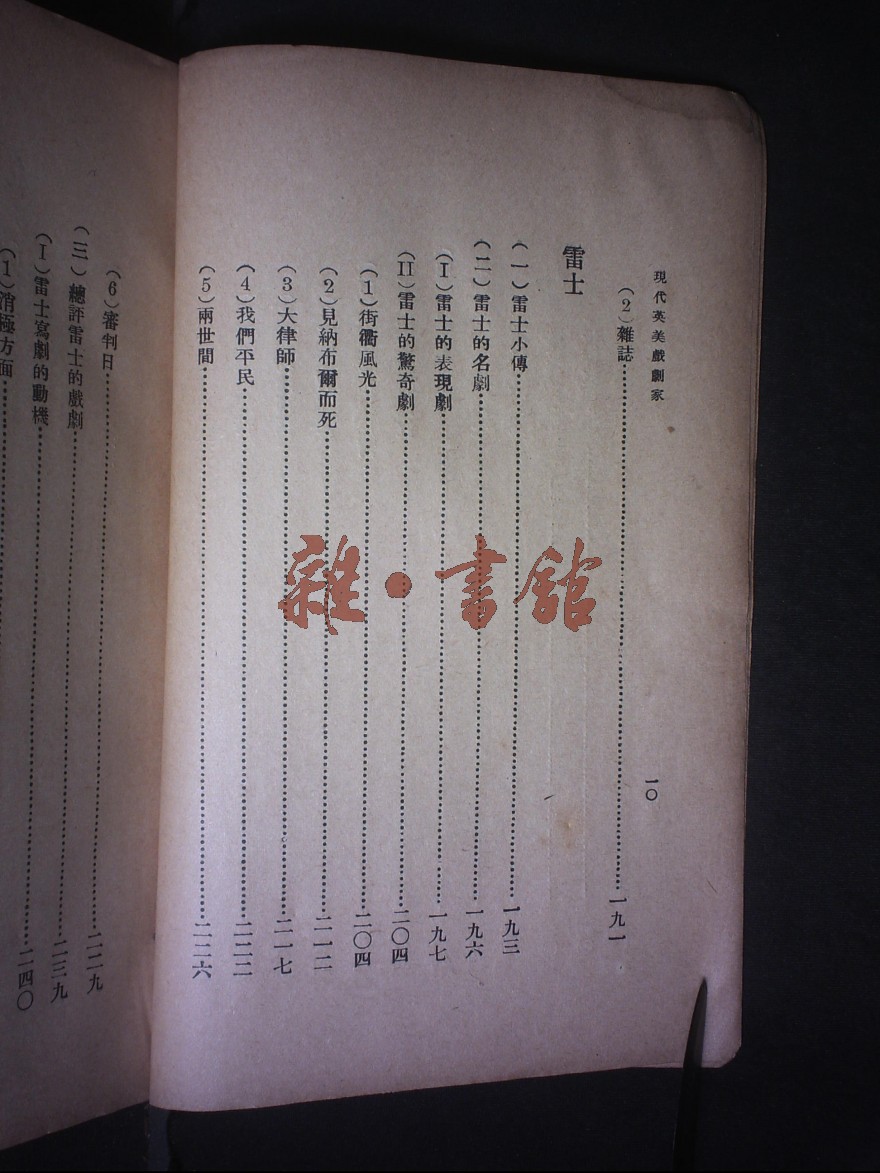 現代英美戲劇家
一〇
（2）雜誌……一九一
雷士
（一）雷士小傳……一九三
（二）雷士的名劇……一九六
（I）雷士的表現劇……一九七
（II）雷士的驚奇劇……二〇四
（1）街衢風光……二〇四
（2）見納布爾而死……二一二
（3）大律師……二一七
（4）我們平民……二二二
（5）兩世間……二二六
（6）審判日……二二九
（三）總評雷士的戲劇……二三九
（I）雷士寫劇的動機……二四〇
（1）消極方面……
雜·書館